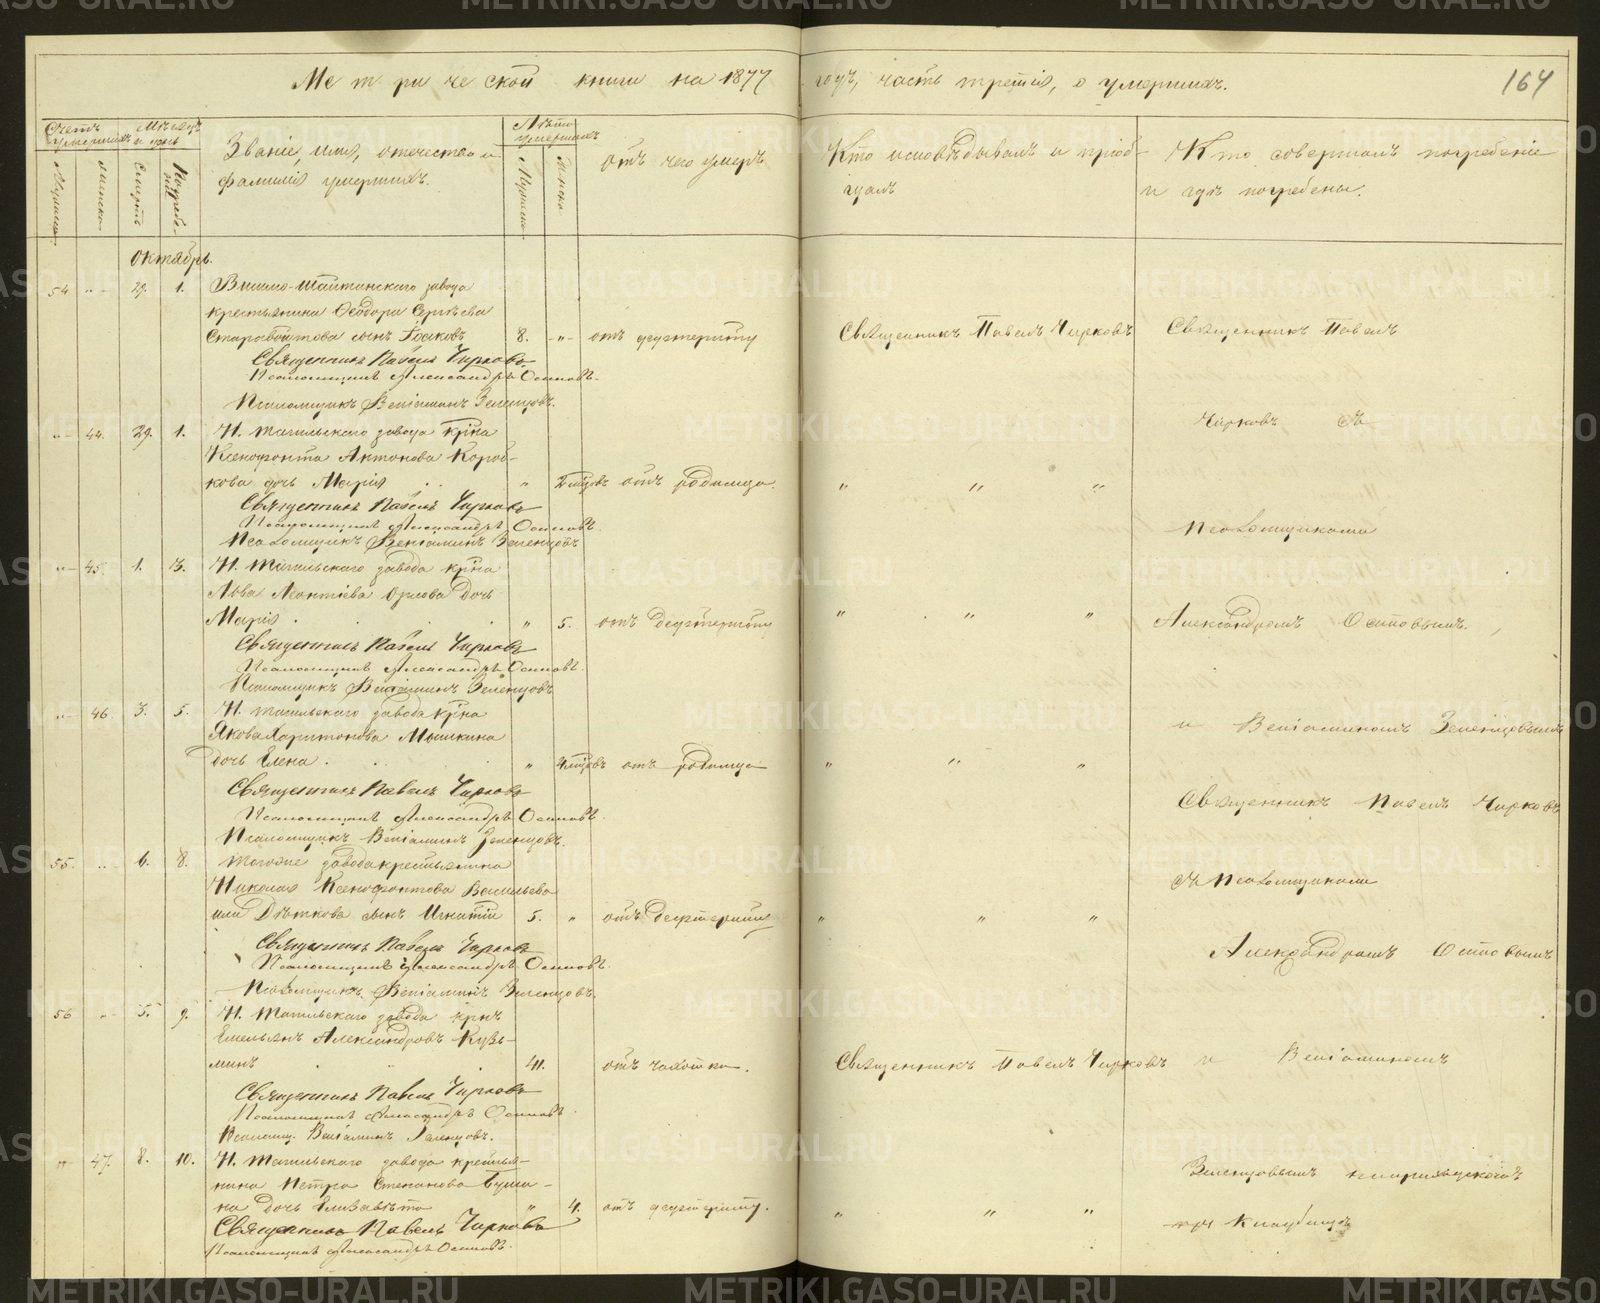 Метрической книги на 1877 годъ, часть третія, о умершихъ.
164
Счетъ умершихъ
Мѣсяцъ и день
Званіе, имя, отчество и
фамилія умершихъ.
Лѣта умершихъ
Отъ чего умеръ
Кто исповѣдывалъ и пріоб-
щалъ
Кто совершалъ погребеніе
и гдѣ погребены.
Мужска
Женска
Смерть
Погребе-
нія
Мужска
Женска
Октябрь.
54 " 29. 1. Висимо-Шайтанскаго завода
крестьянина Ѳеодора Сергѣева
сынъ Іаковъ 8. " отъ дефтериту Священникъ Павелъ Чирковъ Священникъ Павелъ
Священникъ Павелъ Чирковъ
Псаломщикъ Александръ Осиповъ.
Псаломщикъ Веніаминъ Зеленцовъ.
Чирковъ съ
" 44. 29. 1. Н. Тагильскаго завода кр̃на
Ксенофонта Антонова Короб-
кова дочь Марія " 2 мѣсцовъ отъ родимца. " " "
Священникъ Павелъ Чирковъ
Псаломщикъ Александръ Осиповъ.
Псаломщиками
Псаломщикъ Веніаминъ Зеленцовъ
" 45. 1. 3. Н. Тагильскаго завода кр̃на
Льва Леонтіева Орлова дочь
Марія " 5. отъ дефтериту " " " Александромъ Осиповымъ.
Священникъ Павелъ Чирковъ
Псаломщикъ Александръ Осиповъ.
Псаломщикъ Веніаминъ Зеленцовъ
" 46. 3. 5. Н. Тагильскаго завода кр̃на
Якова Харитонова Мышкина
и Веніаминомъ Зеленцовымъ
дочь Елена " мѣсцовъ отъ родимца " " "
Священникъ Павелъ Чирковъ
Священникъ Павелъ Чирковъ
Псаломщикъ Александръ Осиповъ.
Псаломщикъ Веніаминъ Зеленцовъ.
55. " 6. 8. Тогоже завода крестьянина
Николая Ксенофонтова Васильева
съ Псаломщиками
или Дѣткова сынъ Игнатій 5. " отъ дефтериту " " "
Священникъ Павелъ Чирковъ
Александромъ Осиповымъ
Псаломщикъ Александръ Осиповъ.
Псаломщикъ Веніаминъ Зеленцовъ.
56 " 5. 9. Н. Тагильскаго завода кр̃нъ
Емельянъ Александровъ Кузь-
минъ 41. отъ чахотки. Священникъ Павелъ Чирковъ и Веніаминомъ
Священникъ Павелъ Чирковъ
Псаломщикъ Александръ Осиповъ.
Псаломщ. Веніаминъ Зеленцовъ.
" 47. 8. 10. Н. Тагильскаго завода крестья-
нина Петра Степанова
дочь Елизавета " 4. отъ дефтериту. " " "
Зеленцовымъ
кладбищѣ
Священникъ Павелъ Чирковъ
Псаломщикъ Александръ Осиповъ.
METRIKI.GASO-URAL.RU